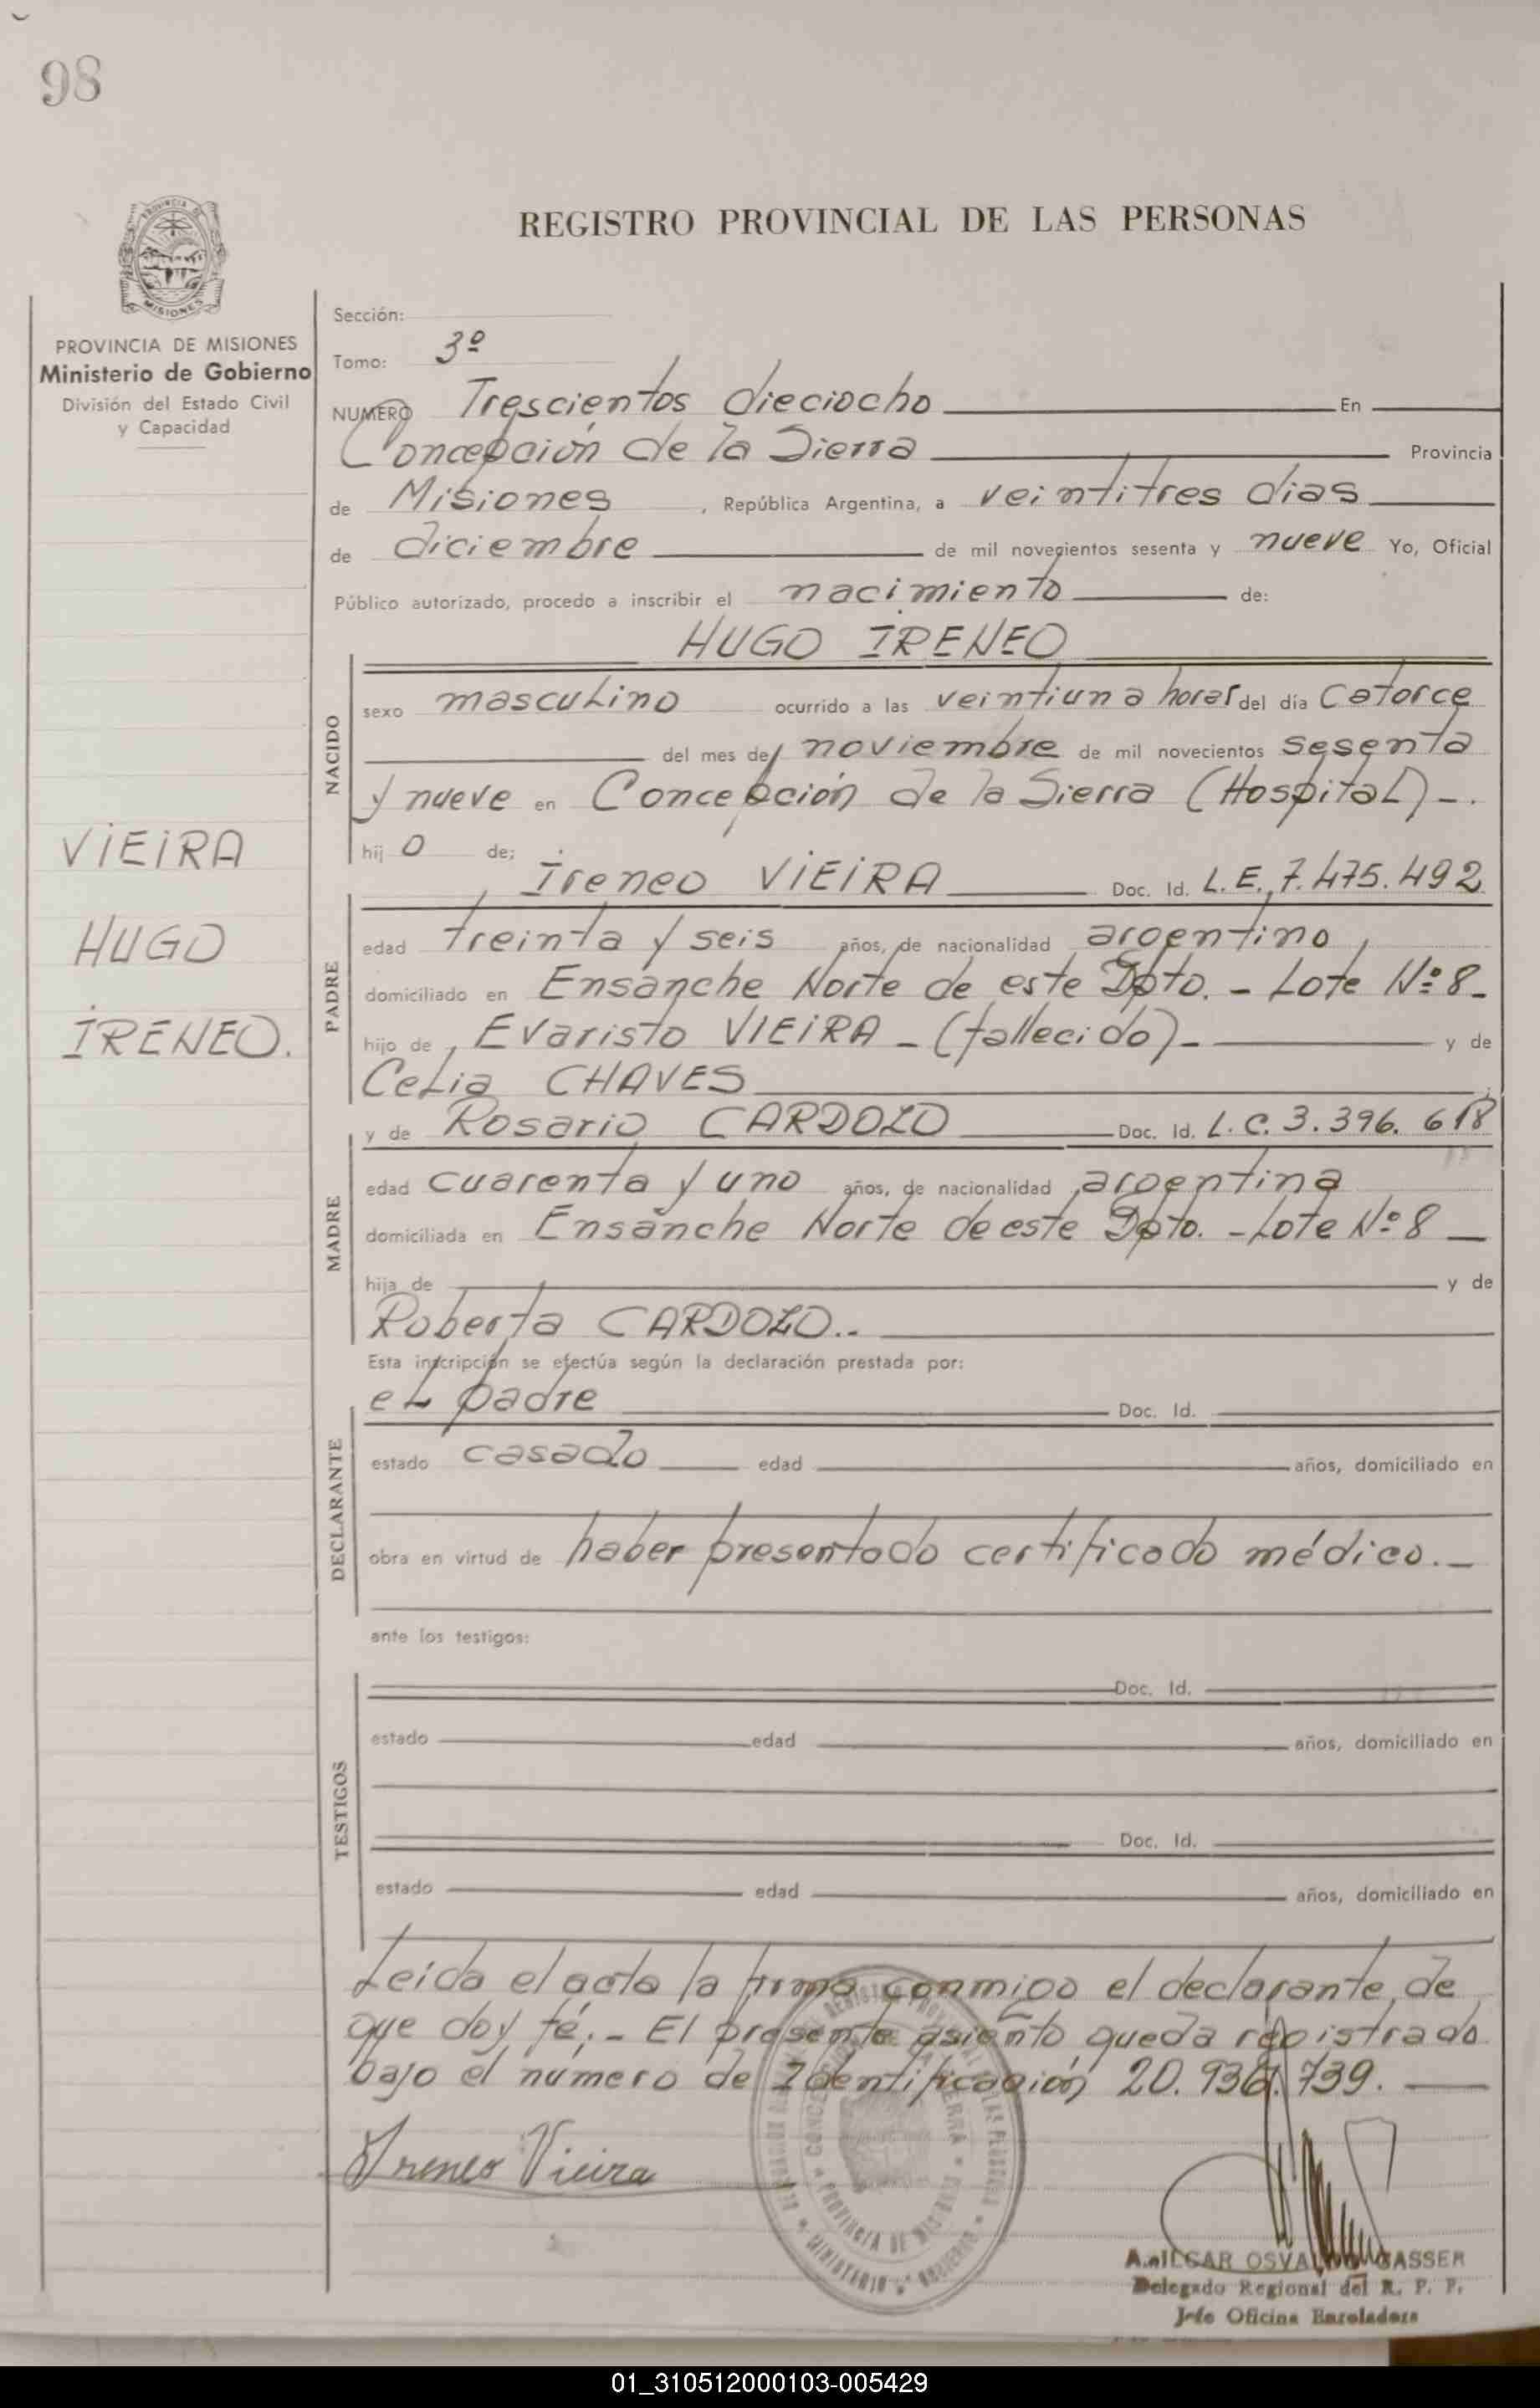 98
REGISTRO PROVINCIAL DE LAS PERSONAS
PROVINCIA DE MISIONES
Ministerio de Gobierno
División del Estado Civil
y Capacidad
Sección:
Tomo: 3º
NUMERO Trescientos dieciocho En
Concepción de la Sierra Provincia
de Misiones , República Argentina, a veintitres dias
de diciembre de mil novecientos sesenta y nueve Yo, Oficial
Público autorizado, procedo a inscribir el nacimiento de:
HUGO IRENEO
NACIDO
sexo masculino ocurrido a las veintiuna horas del día Catorce
del mes de noviembre de mil novecientos sesenta
y nueve en Concepción de la Sierra (Hospital)-.
VIEIRA
HUGO
IRENEO.
hij o de; Ireneo VIEIRA Doc. Id. L.E., 7.475.492
PADRE
edad treinta y seis años, de nacionalidad argentino,
domiciliado en Ensanche Norte de este Dpto. - Lote Nº 8-
hijo de Evaristo VIEIRA - (fallecido)- y de
Celia CHAVES
y de Rosario CARDOZO Doc. Id. L.C. 3.396.618
MADRE
edad cuarenta y uno años, de nacionalidad argentina
domiciliada en Ensanche Norte de este Dpto. - Lote Nº 8
hija de y de
Roberta CARDOZO.-
Esta inscripción se efectúa según la declaración prestada por:
el padre Doc. Id.
DECLARANTE
estado casado edad años, domiciliado en
obra en virtud de haber presentado certificado médico.-
ante los testigos:
TESTIGOS
Doc. Id.
estado edad años, domiciliado en
Doc. Id.
estado edad años, domiciliado en
Leida el acta la firma conmigo el declarante, de
que doy fé;- El presente asiento queda registrado
bajo el numero de Identificación 20.936.739.
Ireneo Vieira
OSVALDO GASSER
Delegado Regional del R. P. P.
Jefe Oficina Enroladora
CONCEPCION DE LA SIERRA
PROVINCIA DE MISIONES
MINISTERIO DE GOBIERNO
01_310512000103-005429